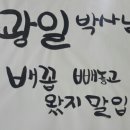 광일 박사님
배꼽 빼놓고
왔지 말입